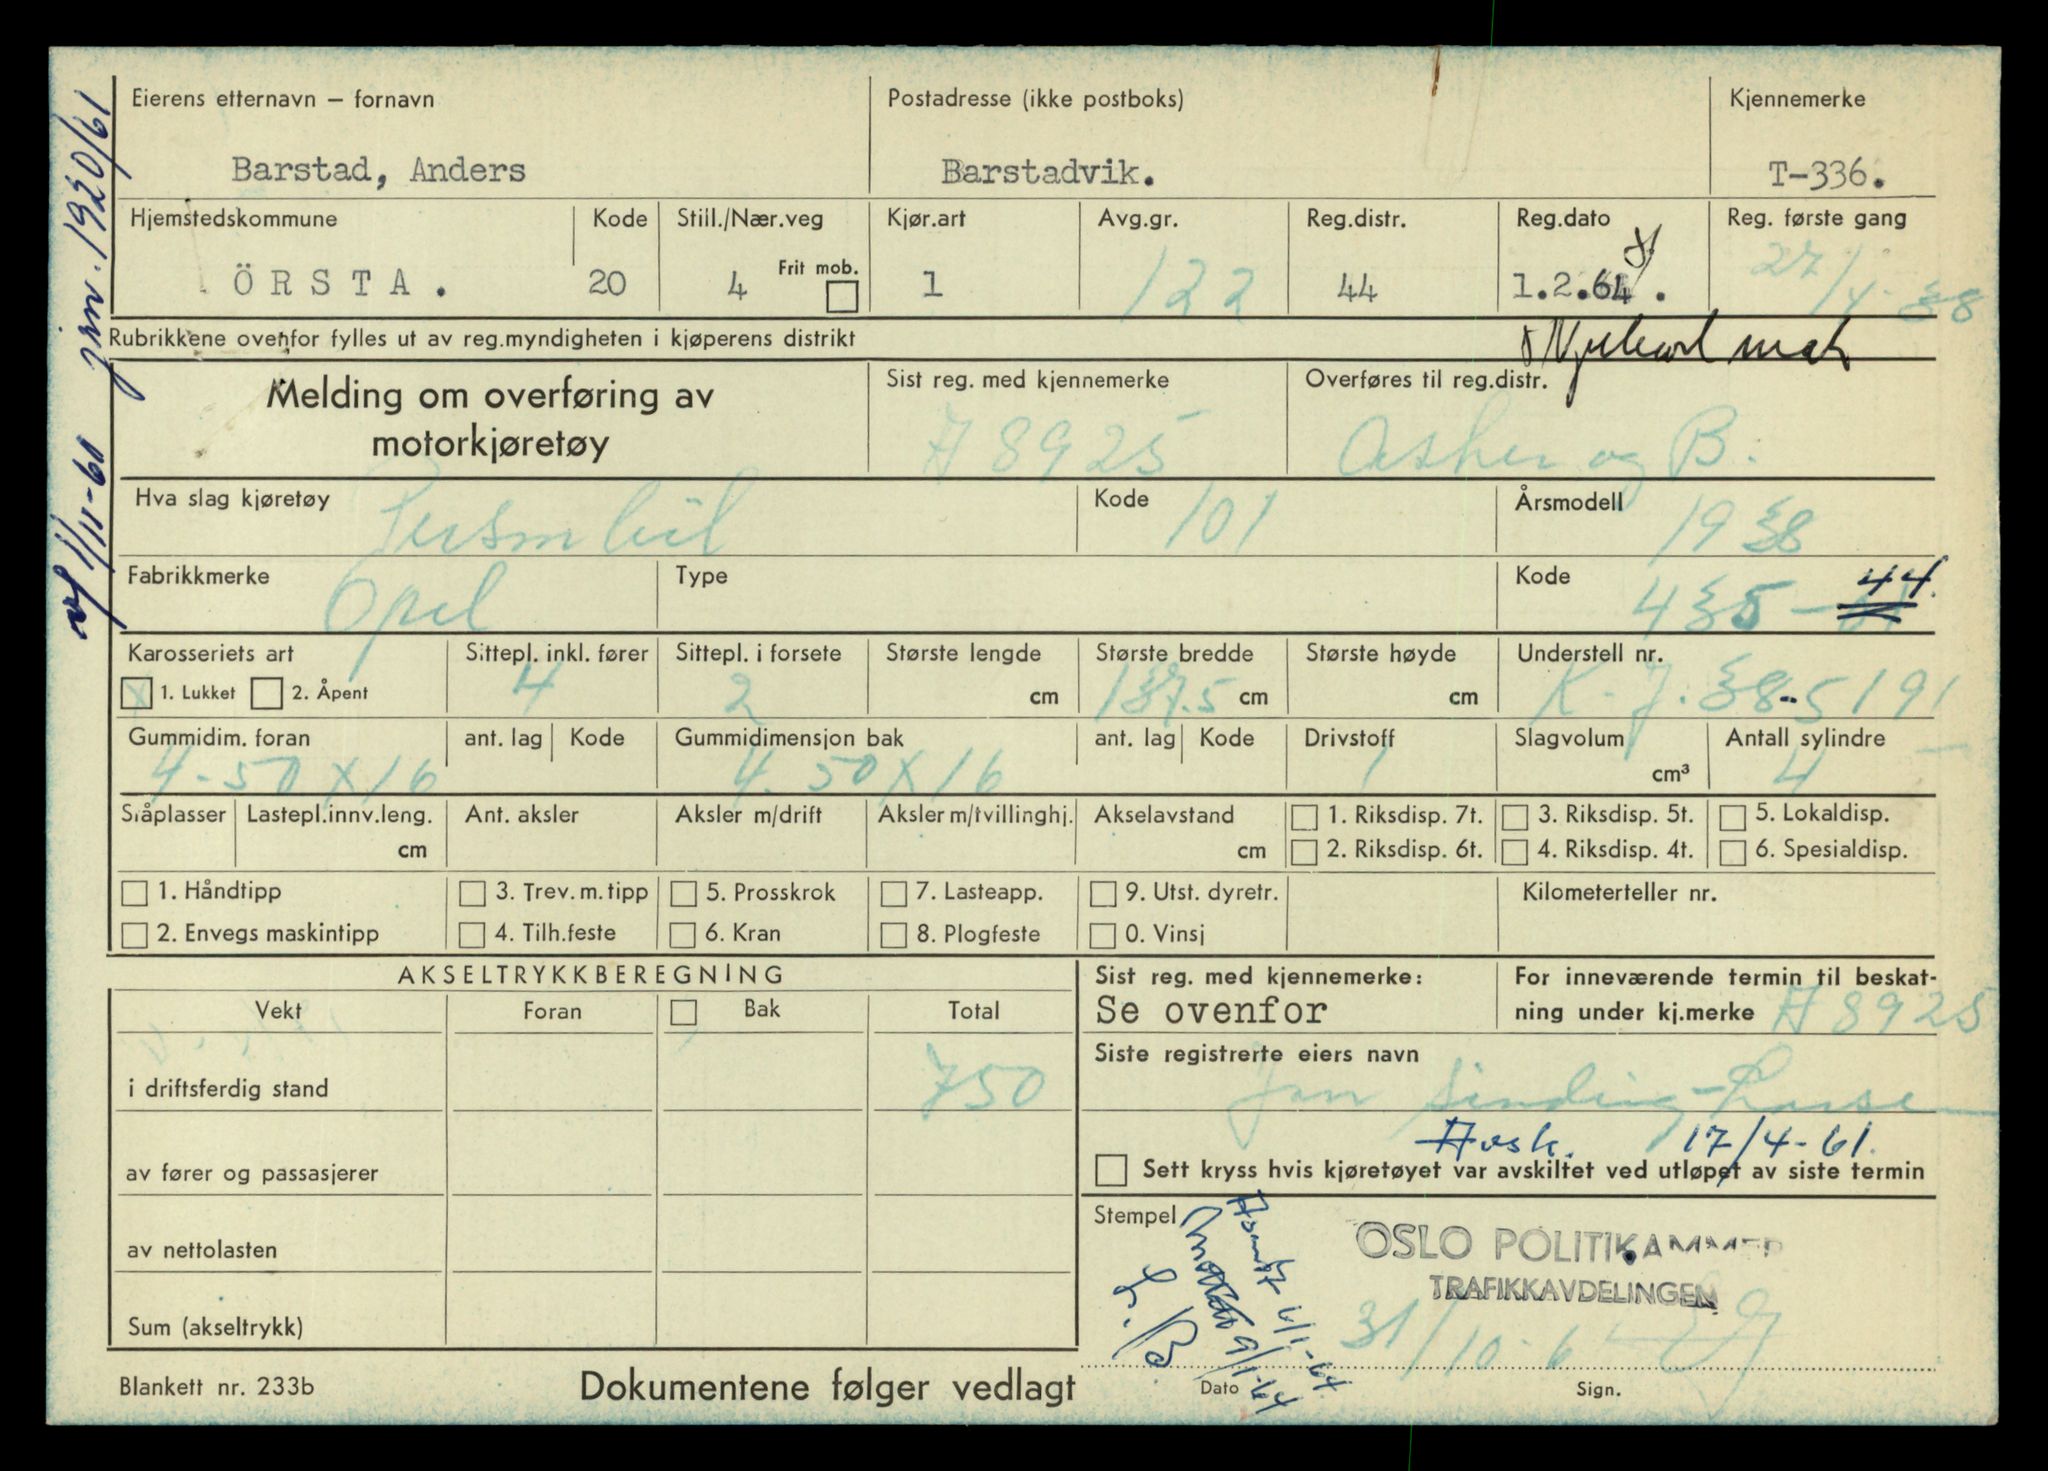 Eierens etternavn – fornavn
Postadresse (ikke postboks)
Kjennemerke
Barstad, Anders
Barstadvik.
T-336.
Hjemstedskommune
Kode
Still./Nær.veg
Kjør.art
Avg.gr.
Reg.distr.
Reg.dato
Reg. første gang
ÖRSTA.
20
4
Frit mob.
1
122
44
1.2.64.
27/4-38
Rubrikkene ovenfor fylles ut av reg.myndigheten i kjøperens distrikt
jrn. 1920/61
1/11-61
Melding om overføring av
motorkjøretøy
Sist reg. med kjennemerke
A 8925
Overføres til reg.distr.
Asker og B.
Hva slag kjøretøy
Personbil
Kode
101
Årsmodell
1938
Fabrikkmerke
Opel
Type
Kode
435-
44.
Karosseriets art
Sittepl. inkl. fører
Sittepl. i forsete
Største lengde
Største bredde
Største høyde
Understell nr.
X 1. Lukket
2. Åpent
4
2
cm
137.5 cm
cm
K.J. 38-5191
Gummidim. foran
ant. lag
Kode
Gummidimensjon bak
ant. lag
Kode
Drivstoff
Slagvolum
Antall sylindre
4-50 X 16
4.50 X 16
1
cm³
4
Sråplasser
Lastepl.innv.leng.
cm
Ant. aksler
Aksler m/drift
Aksler m/tvillinghj.
Akselavstand
cm
1. Riksdisp. 7t.
3. Riksdisp. 5t.
5. Lokaldisp.
2. Riksdisp. 6t.
4. Riksdisp. 4t.
6. Spesialdisp.
1. Håndtipp
3. Trev. m. tipp
5. Prosskrok
7. Lasteapp.
9. Utst. dyretr.
Kilometerteller nr.
2. Envegs maskintipp
4. Tilh.feste
6. Kran
8. Plogfeste
0. Vinsj
AKSELTRYKKBEREGNING
Vekt
Foran
Bak
Total
i driftsferdig stand
750
av fører og passasjerer
av nettolasten
Sum (akseltrykk)
Sist reg. med kjennemerke:
Se ovenfor
For inneværende termin til beskat-
ning under kj.merke A 8925
Siste registrerte eiers navn
Jan Sinding-Larsen
Avsk. 17/4-61.
Sett kryss hvis kjøretøyet var avskiltet ved utløpet av siste termin
Stempel
OSLO POLITIKAMMER
TRAFIKKAVDELINGEN
6/1-64
9/1-64
31/10-6
Dato
Sign.
Blankett nr. 233b
Dokumentene følger vedlagt